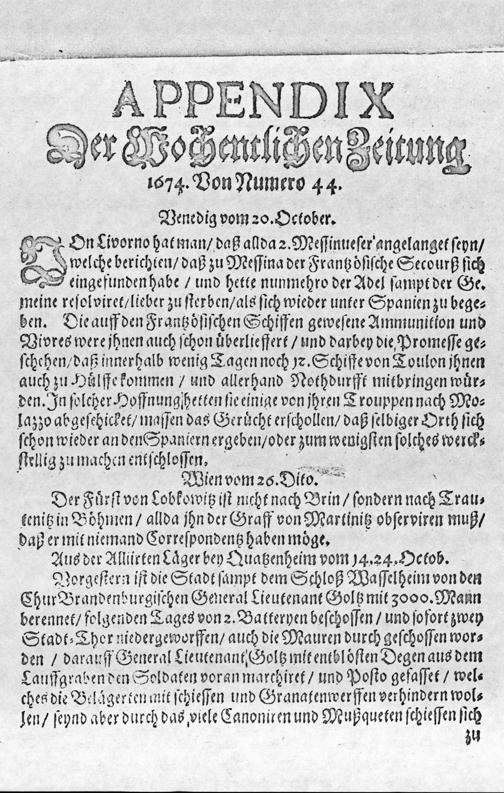 APPENDIX
Der Wochentlichen Zeitung
1674. Von Numero 44.
Venedig vom 20. October.
VOn Livorno hat man/ daß allda 2. Messinueser angelanget seyn/
welche berichten/ daß zu Messina der Frantzösische Secourß sich
eingefunden habe / und hette nunmehro der Adel sampt der Ge-
meine resolviret/ lieber zu sterben/ als sich wieder unter Spanien zu bege-
ben. Die auff den Frantzösischen Schiffen gewesene Ammunition und
Vivres were jhnen auch schon überlieffert / und darbey die Promesse ge-
schehen/ daß innerhalb wenig Tagen noch 12. Schiffe von Toulon jhnen
auch zu Hülffe kommen / und allerhand Nothdurfft mitbringen wür-
den. In solcher Hoffnung hetten sie einige von jhren Trouppen nach Mo-
lazzo abgeschicket/ massen das Gerücht erschollen/ daß selbiger Orth sich
schon wieder an den Spaniern ergeben/ oder zum wenigsten solches werck-
stellig zu machen entschlossen.
Wien vom 26. Dito.
Der Fürst von Lobkowitz ist nicht nach Brin / sondern nach Trau-
tenitz in Böhmen / allda jhn der Graff von Martinitz observiren muß/
daß er mit niemand Correspondentz haben möge.
Aus der Alliirten Läger bey Quatzenheim vom 14. 24. Octob.
Vorgestern ist die Stadt sampt dem Schloß Wasselheim von den
ChurBrandenburgischen General Lieutenant Goltz mit 3000. Mann
berennet/ folgenden Tages von 2. Batteryen beschossen / und sofort zwey
Stadt-Thor niedergeworffen/ auch die Mauren durch geschossen wor-
den / darauff General Lieutenant Goltz mit entblösten Degen aus dem
Lauffgraben den Soldaten voran marchiret/ und Posto gefasset / wel-
ches die Belägerten mit schiessen und Granatenwerffen verhindern wol-
len/ seynd aber durch das viele Canoniren und Mußqueten schiessen sich
zu